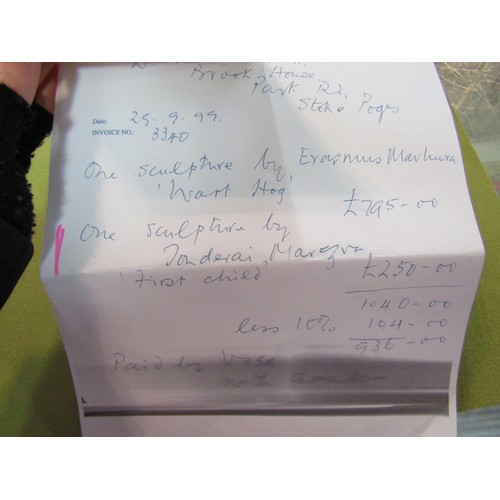 Brook House,
Park Rd,
Stoke Poges
Date: 29.9.99.
INVOICE NO.: 3340
One sculpture by Erasmus Marhura
'Wart Hog' £795-00
One sculpture by
Tonderai
'First child' £250-00
1040-00
less 10% 104-00
936-00
Paid by Visa